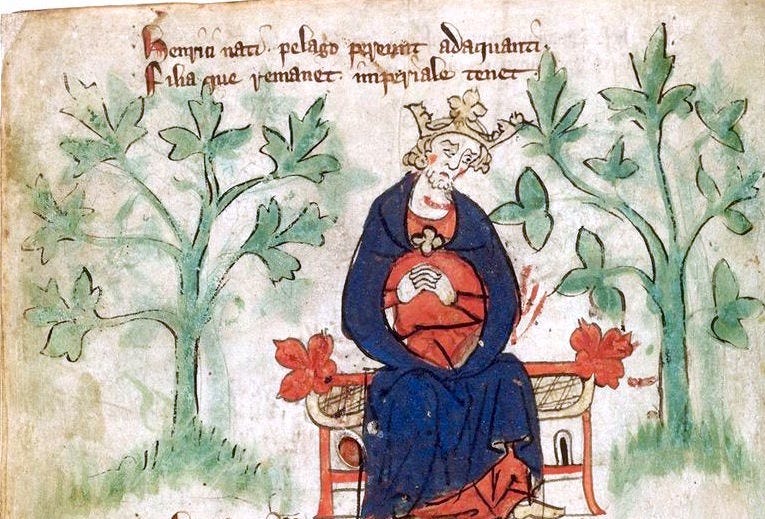 Henrici nati. pelago pereunt adaquanti.
Filia que remanet. imperiale tenet.